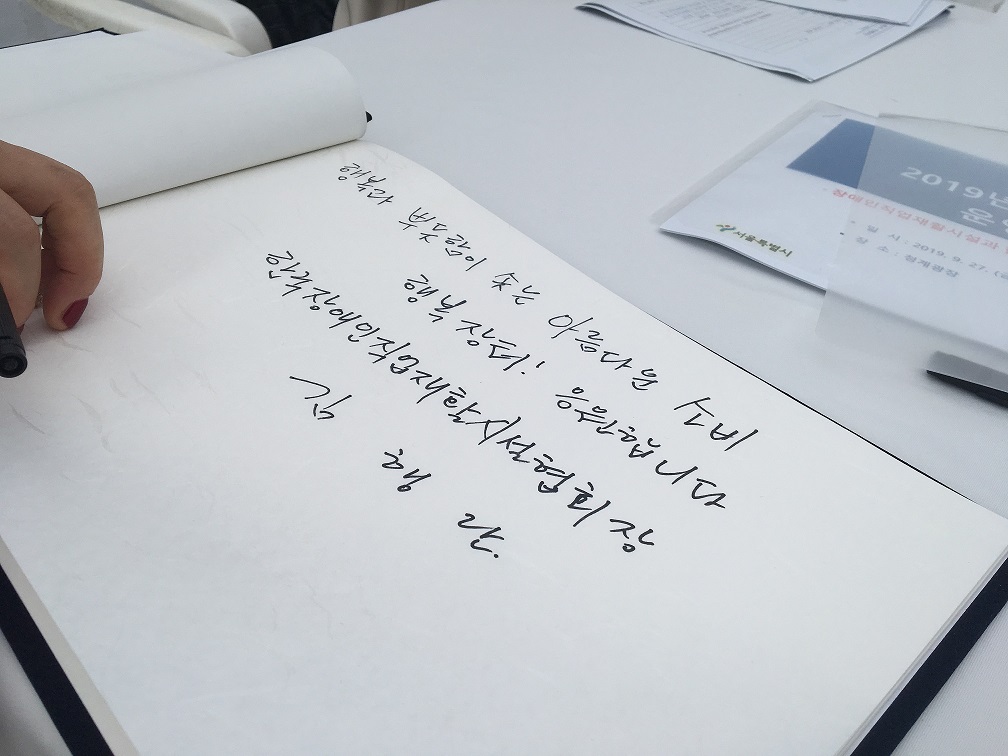 행복과 뿌듯함이 솟는 아름다운 소비
행복장터! 응원합니다
한국장애인직업재활시설협회장
김 행 란.
2019년
운영
장애인직업재활시설과
· 일 시 : 2019. 9. 27. (금
· 장 소 : 청계광장
서울특별시